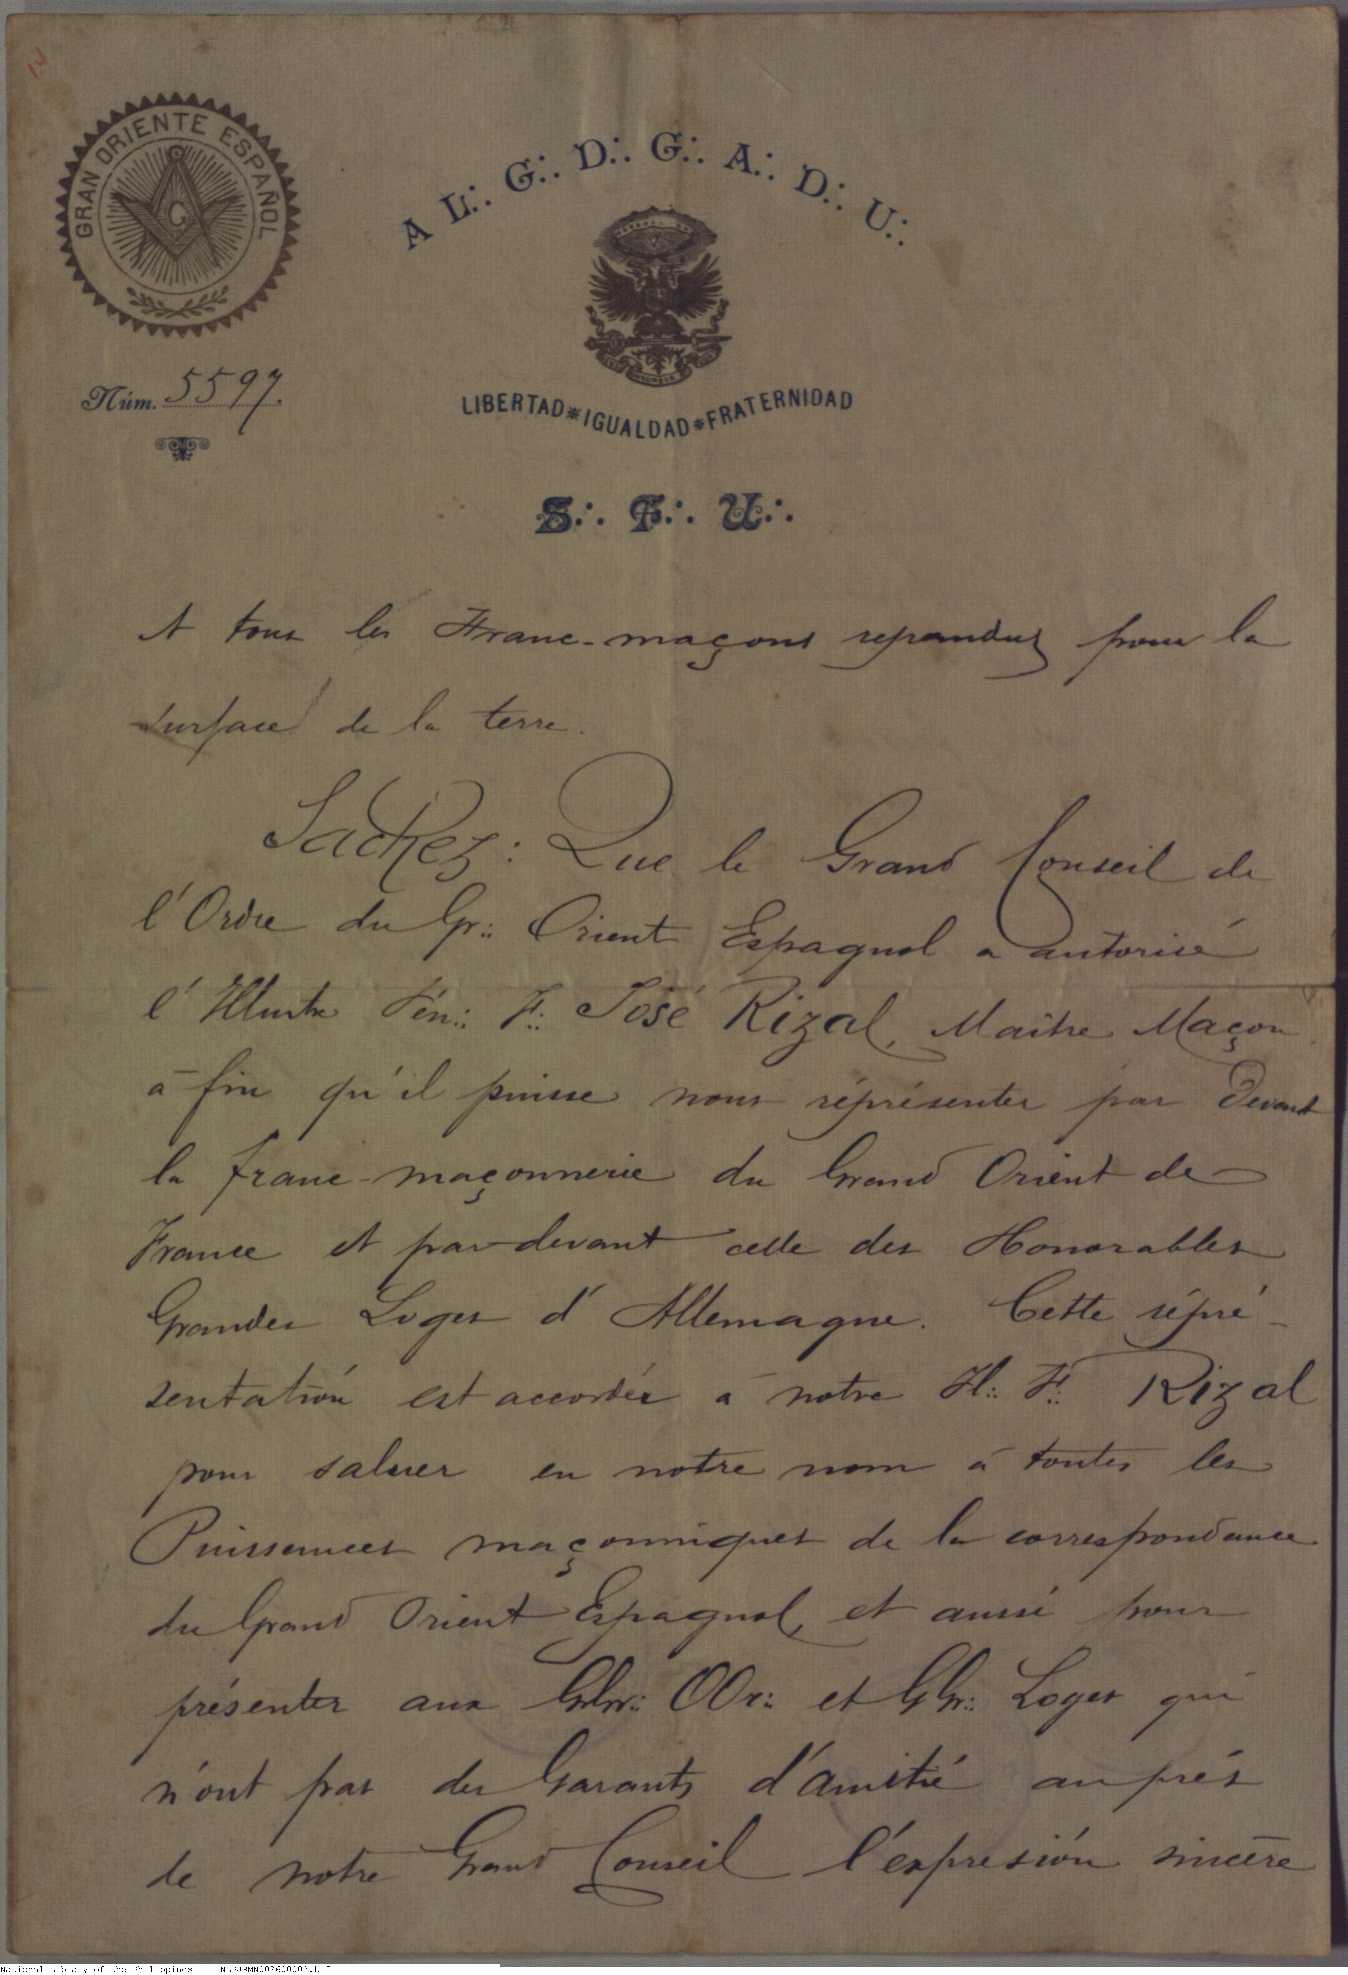 GRAN ORIENTE ESPAÑOL
G
A L∴ G∴ D∴ G∴ A∴ D∴ U∴
Núm. 5597.
LIBERTAD * IGUALDAD * FRATERNIDAD
S∴ F∴ U∴
A tous les Franc-maçons repandus pour la
surface de la terre.
Sachez: Que le Grand Conseil de
l'Ordre du Gr∴ Orient Espagnol a autorisé
l'Illustre Vén∴ F∴ José Rizal, Maitre Maçon
á fin qu'il puisse nous réprésenter par devant
la franc-maçonnerie du Grand Orient de
France et par-devant celle des Honorables
Grandes Loges d'Allemagne. Cette répré-
sentatión est accordée á notre Il∴ F∴ Rizal
pour saluer en notre nom á toutes les
Puissances maçonniques de la correspondance
du Grand Orient Espagnol, et aussi pour
présenter aux GGr∴ OOr∴ et GGr∴ Loges qui
n'ont pas des Garants d'amitié auprés
de notre Grand Conseil l'expresión sincère
National Library of the Philippines